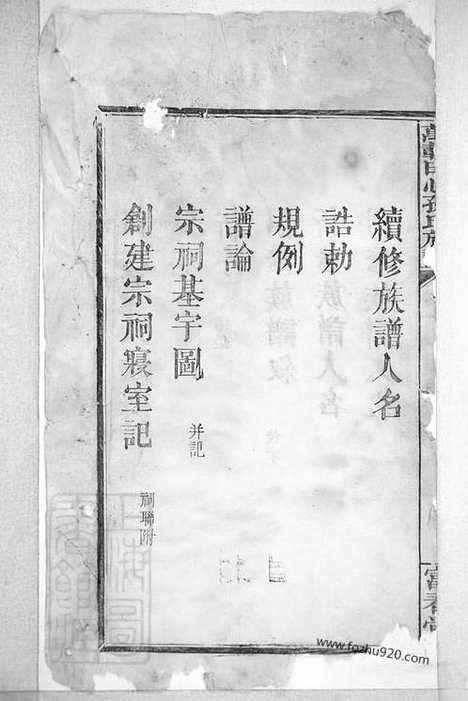 續修族譜人名
誥勅
規例
譜論
宗祠基宇圖 并記
創建宗祠寢室記 祠聯附
www.fozhu920.com